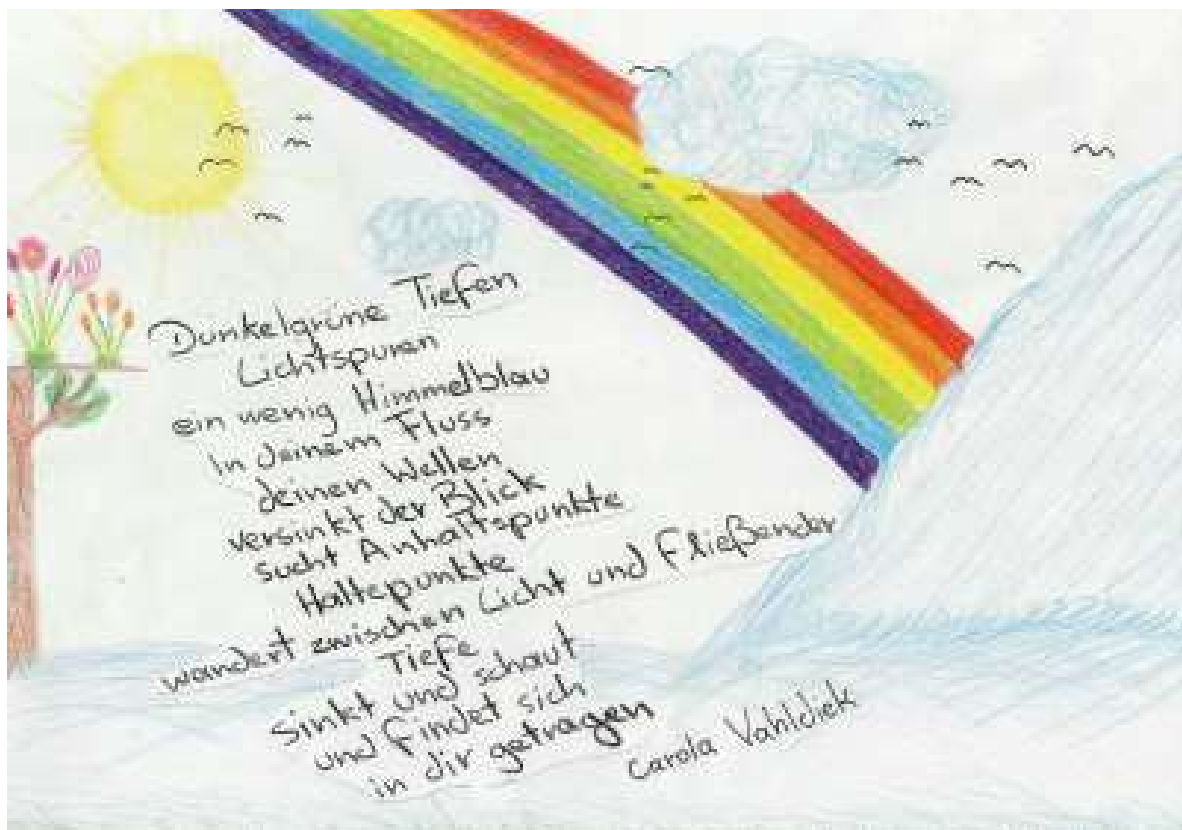 Dunkelgrüne Tiefen
Lichtspuren
ein wenig Himmelblau
in deinem Fluss
deinen Wellen
versinkt der Blick
sucht Anhaltspunkte
Haltepunkte
wandert zwischen Licht und fließender
Tiefe
sinkt und schaut
und findet sich
in dir getragen
Carola Vahldiek